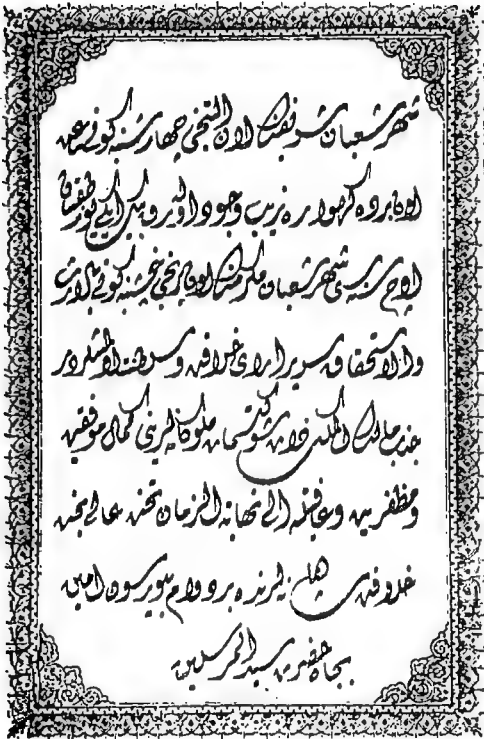 شهر شعبان شریفنك اون التنجی چهارشنبه کونی ساعت
اون برده کهواره زیب وجود اولوب بیك ایکیوز طقسان
اوچ سنه سی شهر شعبان مکرمنك اون برنجی پنجشنبه کونی بالارث
والاستحقاق سریر ارای خلافت و سلطنت اولمشلردر
جناب مالك الملك ذات شوکتسمات ملوکانه لرینی کمال موفقیت
و مظفریت و عافیتله الی نهایة الزمان تخت عالی بخت
خلافت پناهیلرنده بر دوام بیورسون امین
بجاه حضرت سید المرسلین